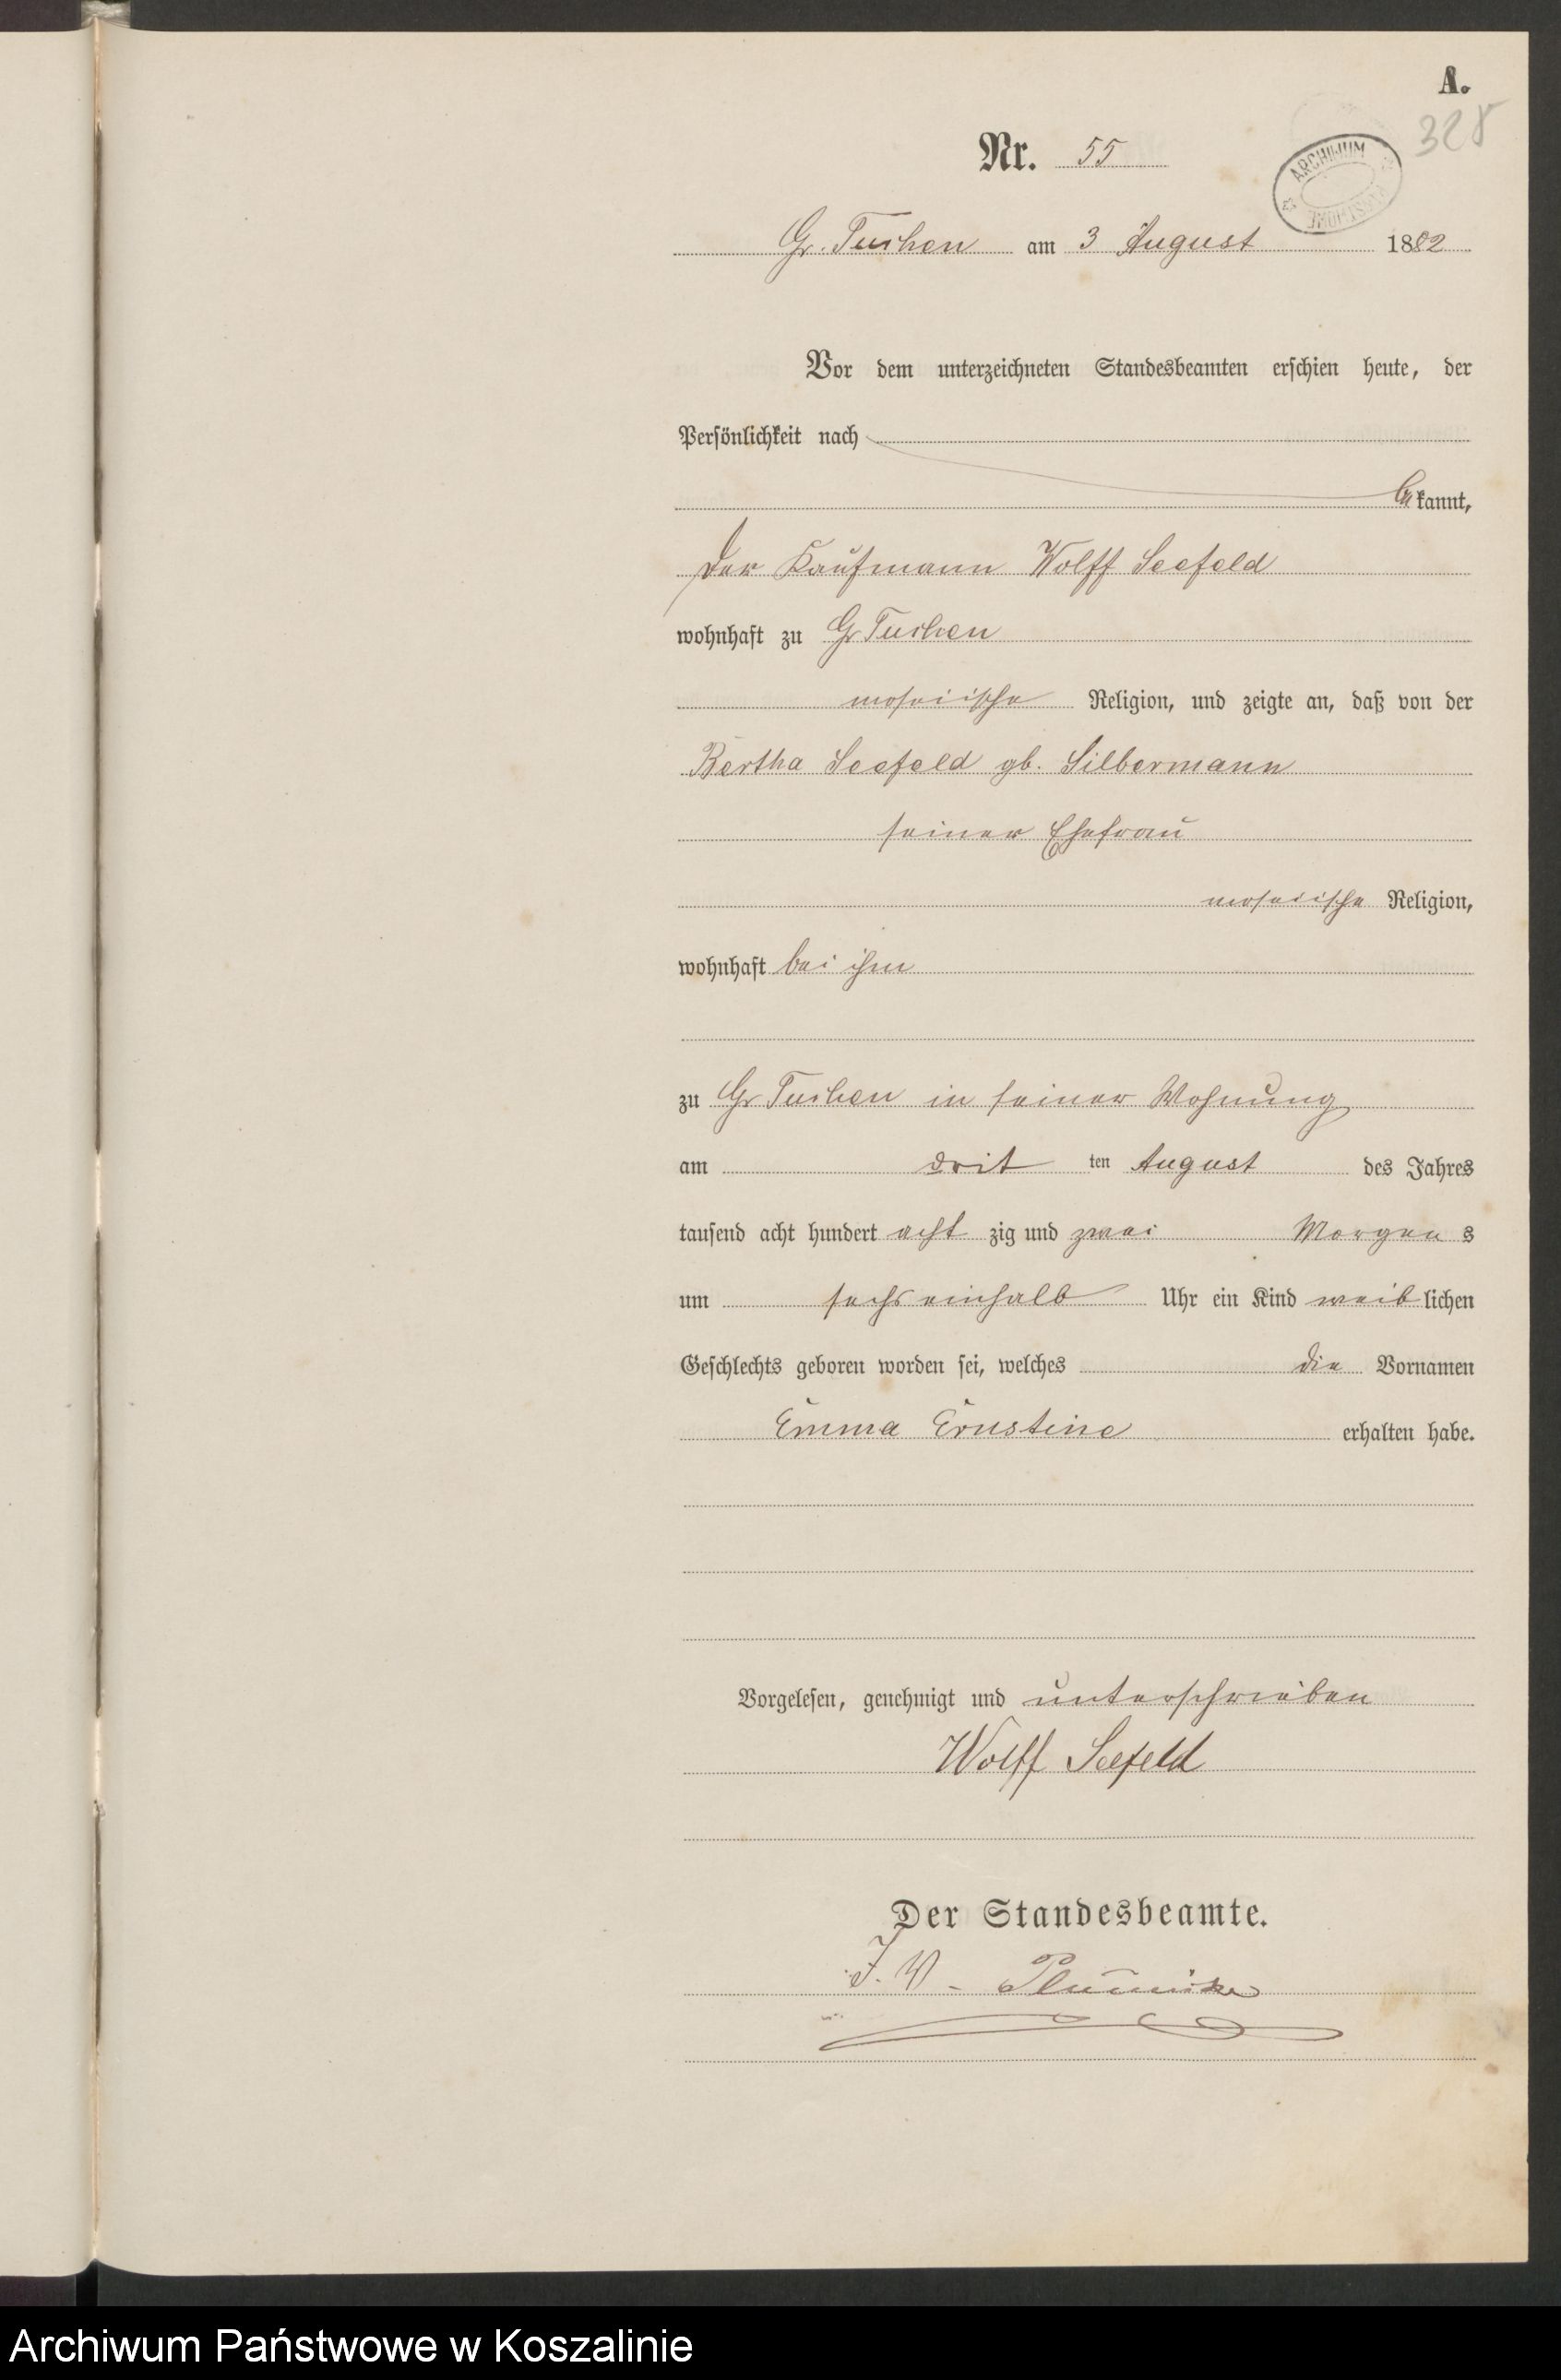 A.
328
Nr. 55
ARCHIWUM
Gr. Tuchen am 3 August 1882
Vor dem unterzeichneten Standesbeamten erschien heute, der
Persönlichkeit nach
bekannt,
der Kaufmann Wolff Seefeld
wohnhaft zu Gr Tuchen
mosaische Religion, und zeigte an, daß von der
Bertha Seefeld gb. Silbermann
seiner Ehefrau
mosaische Religion,
wohnhaft bei ihm
zu Gr Tuchen in seiner Wohnung
am dritten August des Jahres
tausend acht hundert acht zig und zwei Morgens
um sechs einhalb Uhr ein Kind weiblichen
Geschlechts geboren worden sei, welches die Vornamen
Emma Ernstine erhalten habe.
Vorgelesen, genehmigt und unterschrieben
Wolff Seefeld
Der Standesbeamte.
J. V.
Archiwum Państwowe w Koszalinie